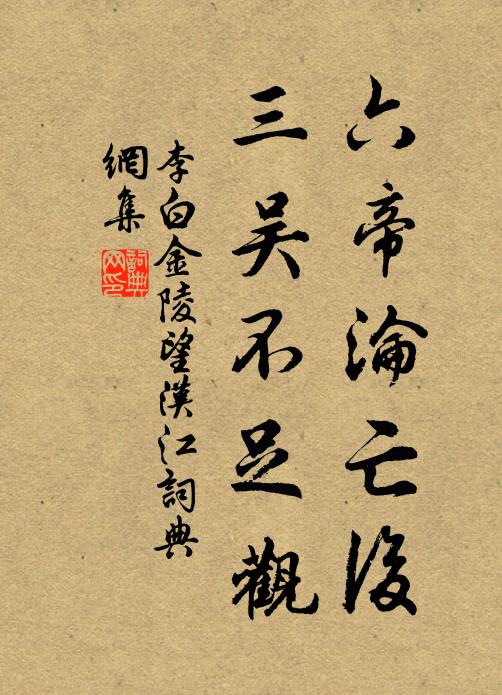 六帝淪亡後
三吴不足觀
李白金陵望漢江詞典
網集
詞典
网印